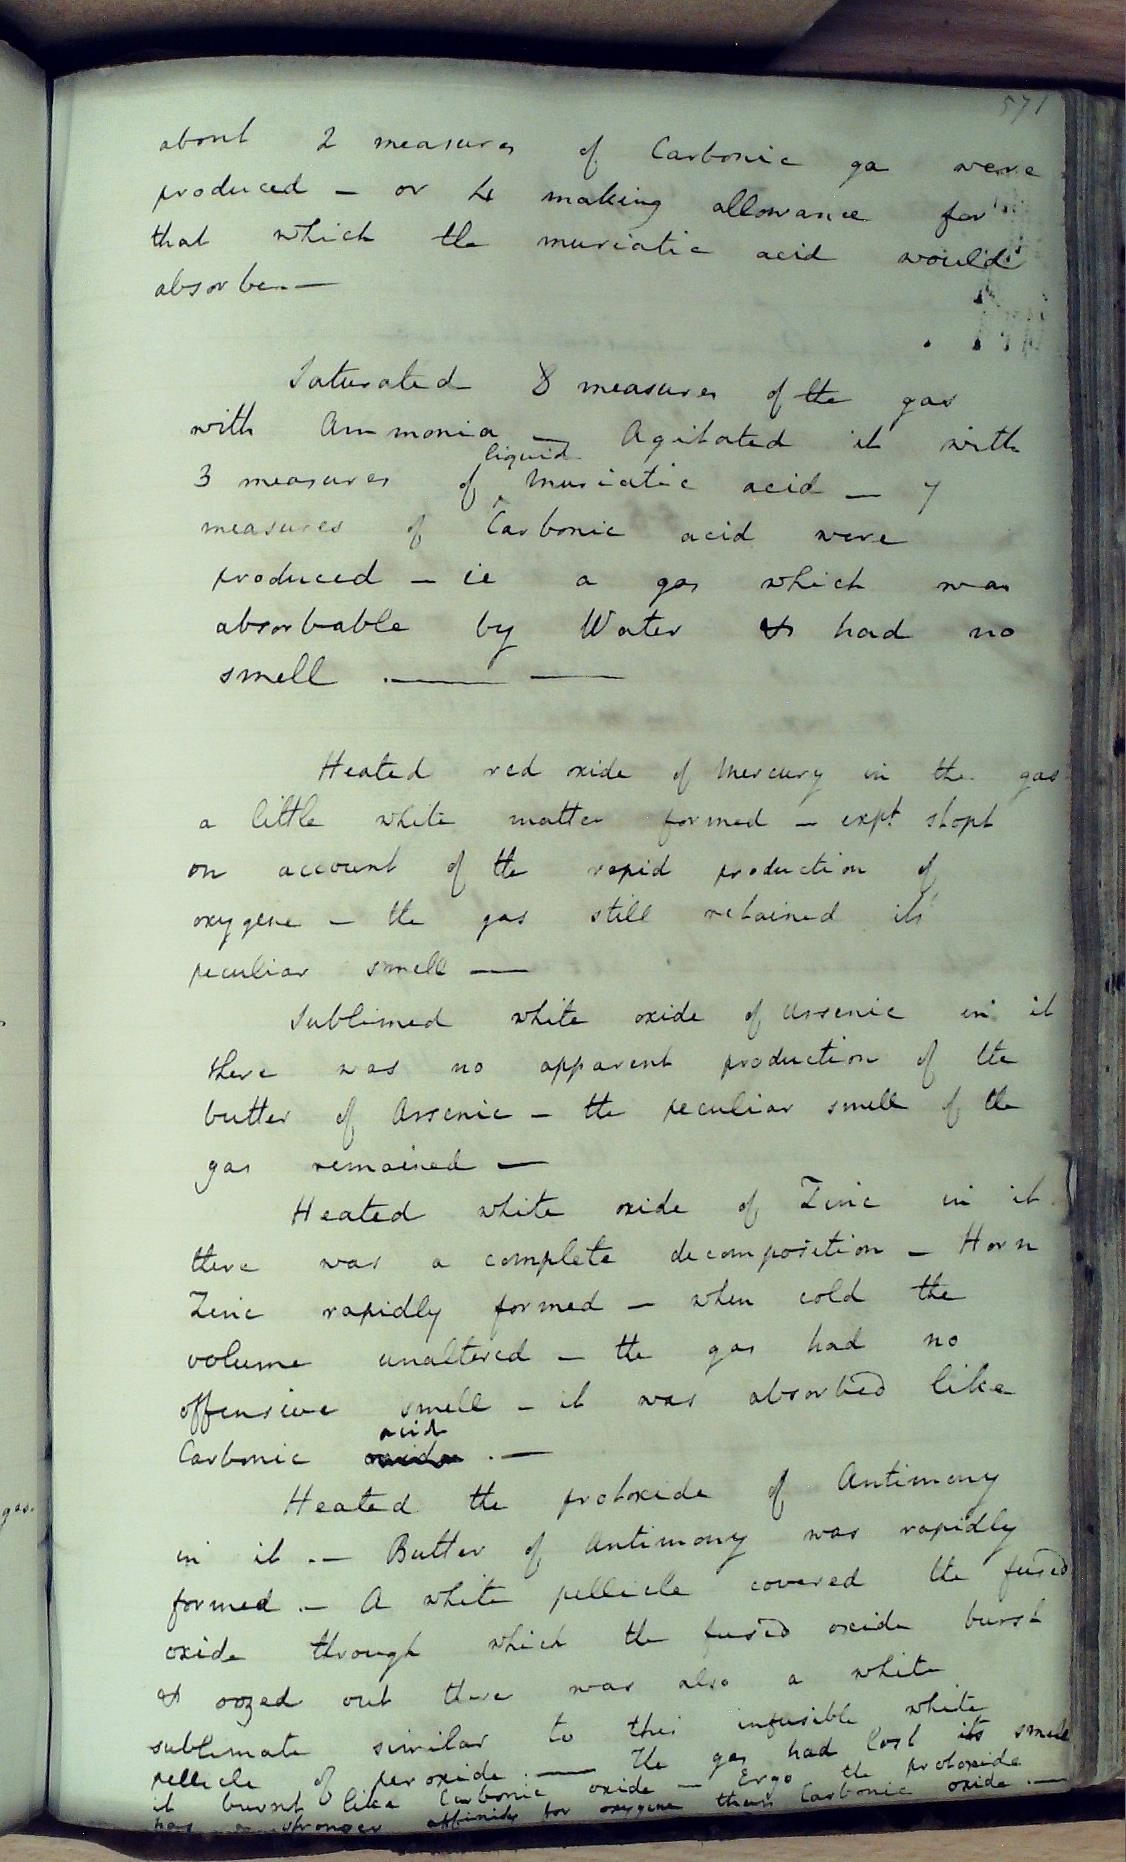 571
about 2 measures of Carbonic gas were
produced - or 4 making allowance for
that which the muriatic acid would
absorbe. -
Saturated 8 measures of the gas
with Ammonia - Agitated it with
liquid
3 measures of ^ Muriatic acid - 7
measures of Carbonic acid were
produced - ie a gas which was
absorbable by Water & had no
smell . — —
Heated red oxide of Mercury in the gas
a little white matter formed - expt. stopt
on account of the rapid production of
oxygene - the gas still retained its
peculiar smell —
Sublimed white oxide of arsenic in it
there was no apparent production of the
butter of Arsenic - the peculiar smell of the
gas remained —
Heated white oxide of Zinc in it
there was a complete decomposition - Horn
Zinc rapidly formed - when cold the
volume unaltered - the gas had no
offensive smell - it was absorbed like
acid
Carbonic oxide . —
Heated the protoxide of Antimony
in it . - Butter of Antimony was rapidly
formed . - A white pellicle covered the fused
oxide through which the fused oxide burst
& oozed out there was also a white
sublimate similar to this infusible white
pellicle of peroxide . — The gas had lost its smell
it burnt like Carbonic oxide - Ergo the protoxide
has a stronger affinity for oxygene than Carbonic oxide . —
gas.